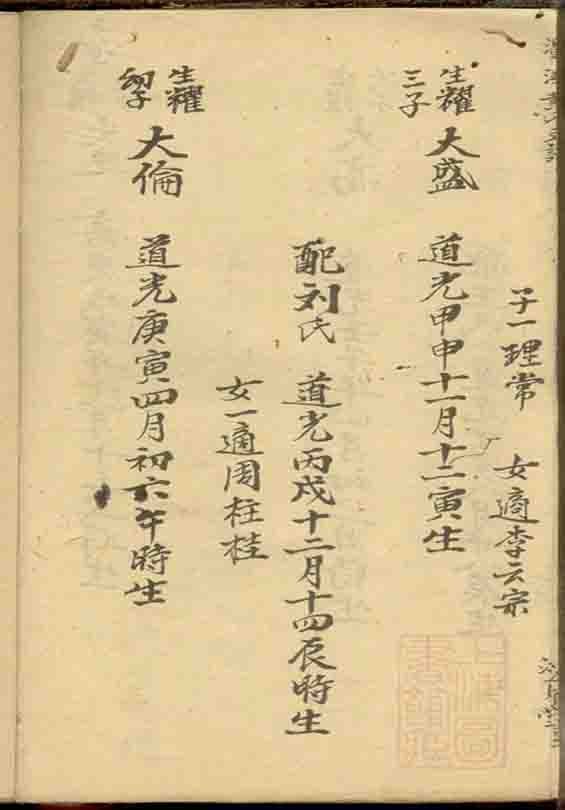 子一理常 女適李云宗
生耀三子 大盛 道光甲申十一月十二寅生
配刘氏 道光丙戌十二月十四辰時生
女一適周柱桂
生耀幼子 大倫 道光庚寅四月初六午時生